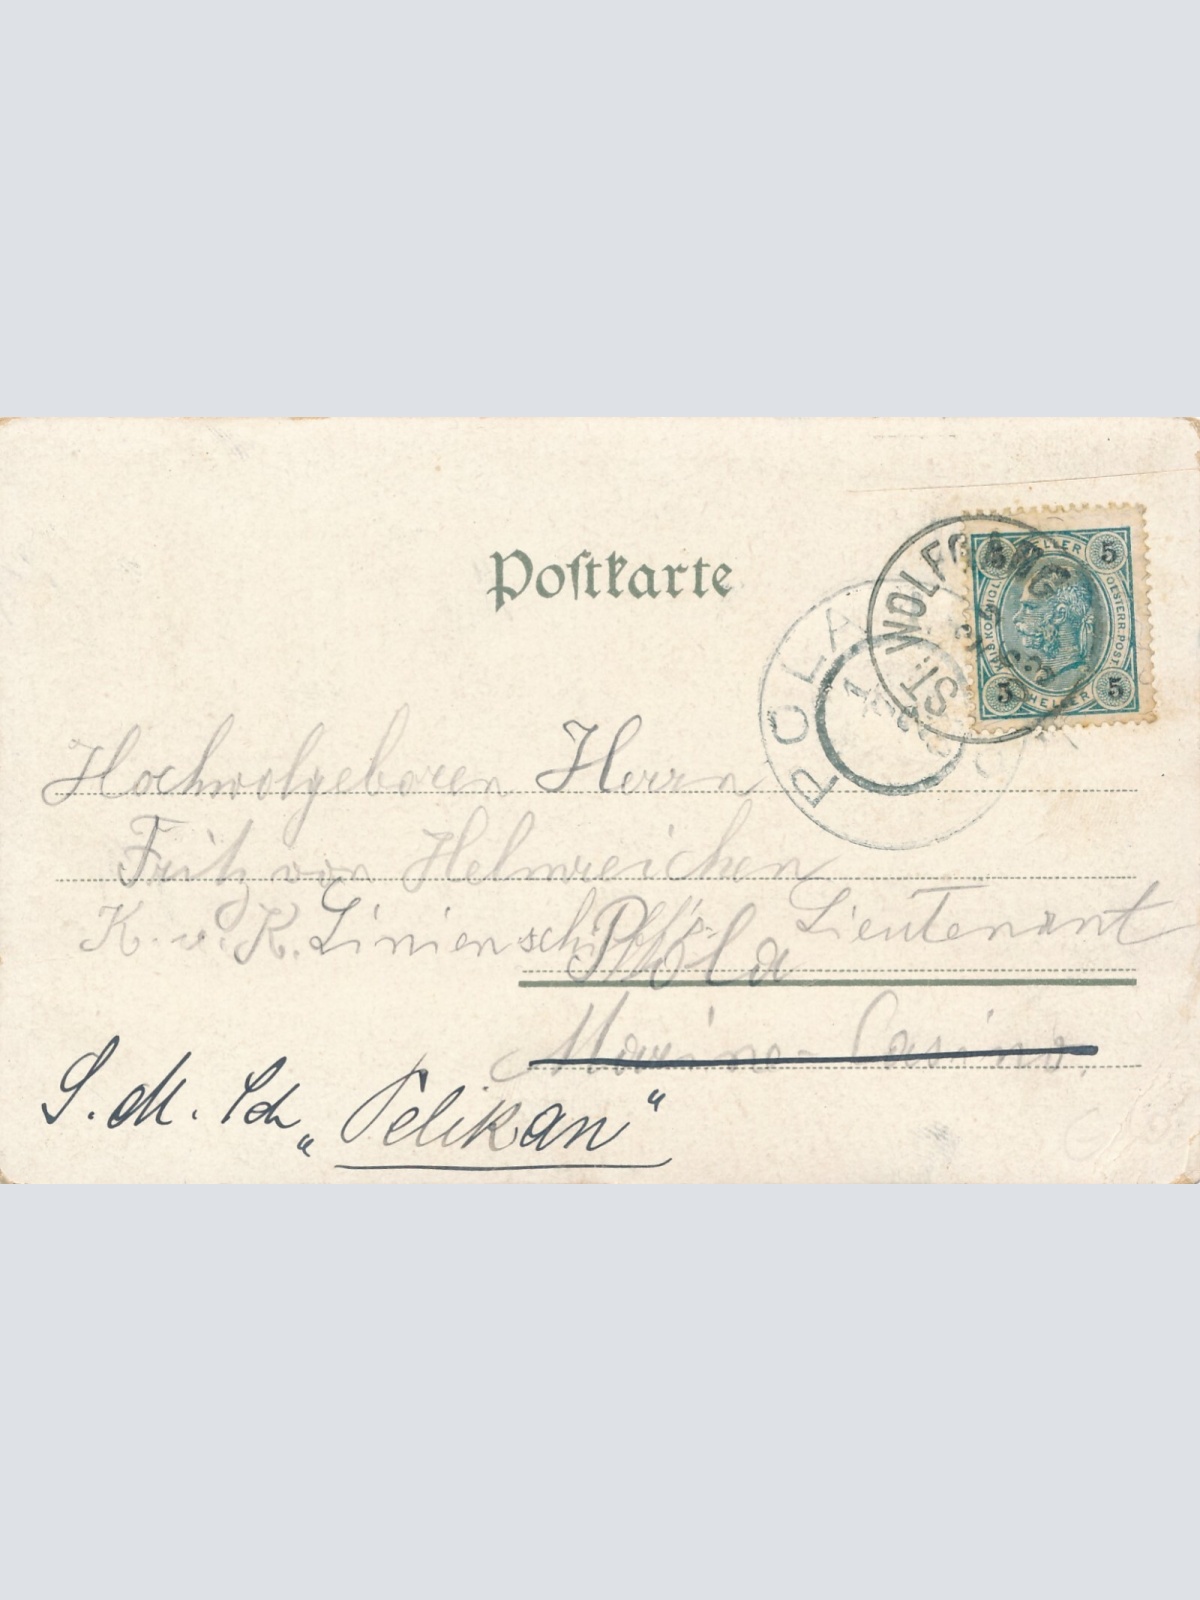 Postkarte
HELLER
5 5
KAIS. KOENIGL. OESTERR. POST
5 5
HELLER
ST. WOLFGANG
POLA
Hochwolgeboren Herrn
Fritz von Helmreichen
K. u. K. Linienschiffs-Lieutenant
Pola
Marine-Casino.
S. M. Sch „Pelikan"